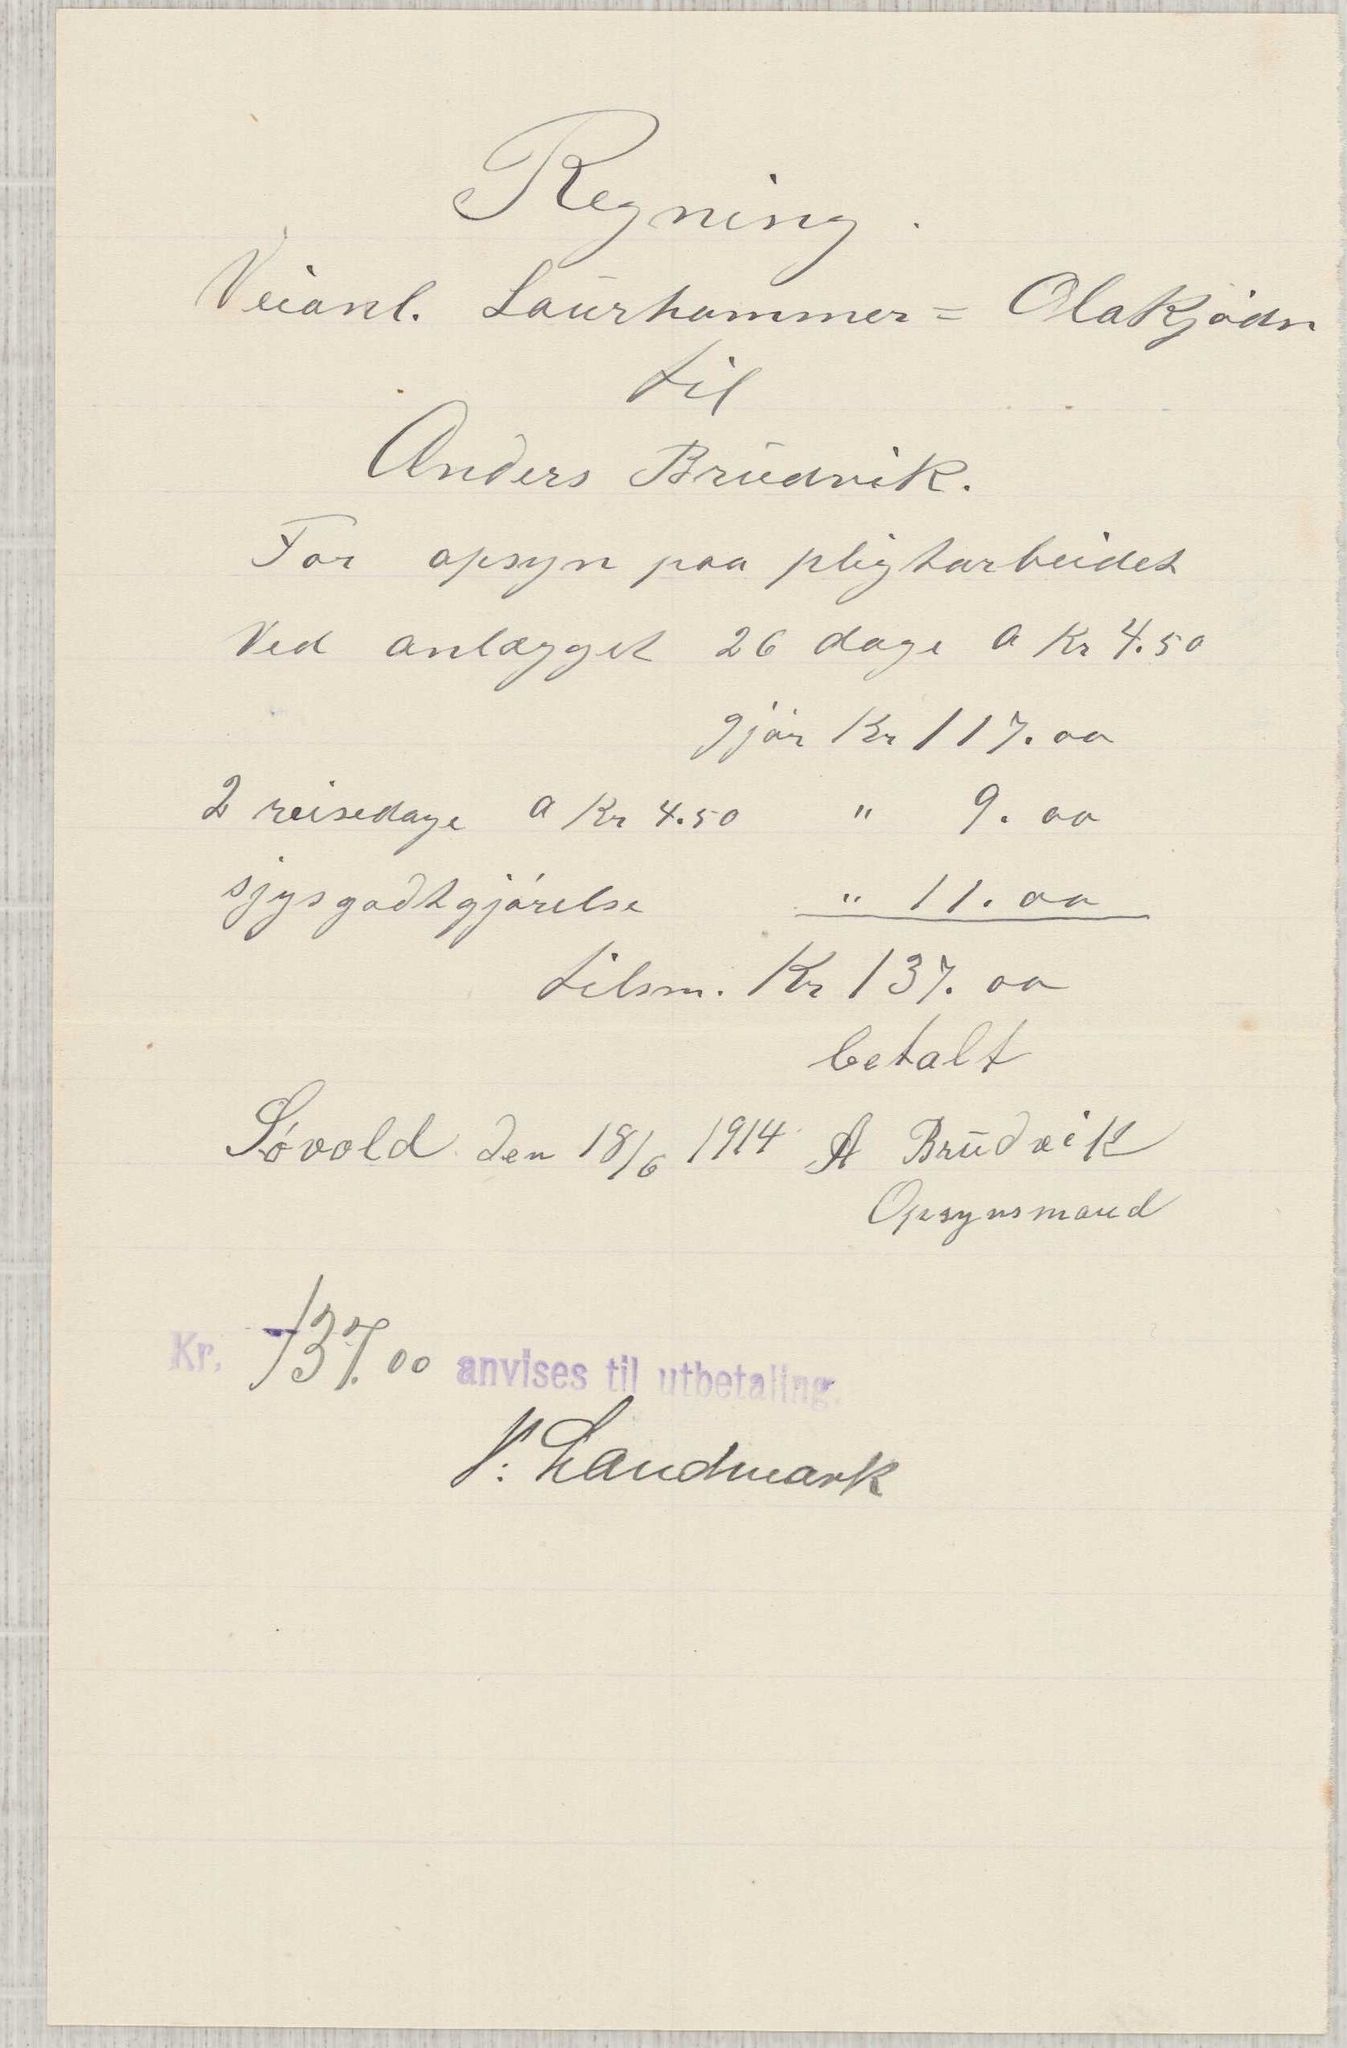 Regning.
Veianl. Laurhammer = Olakjødn
til
Anders Brudvik.
For opsyn paa pligtarbeidet
Ved anlægget 26 dage a Kr 4.50
gjør Kr 117.00
2 reisedage a Kr 4.50 " 9.00
sjysgodtgjørelse " 11.00
tilsm. Kr 137.00
betalt
Søvold den 18/6 1914 A Brudvik
Opsynsmand
Kr. 137.00 anvises til utbetaling.
N: Landmark